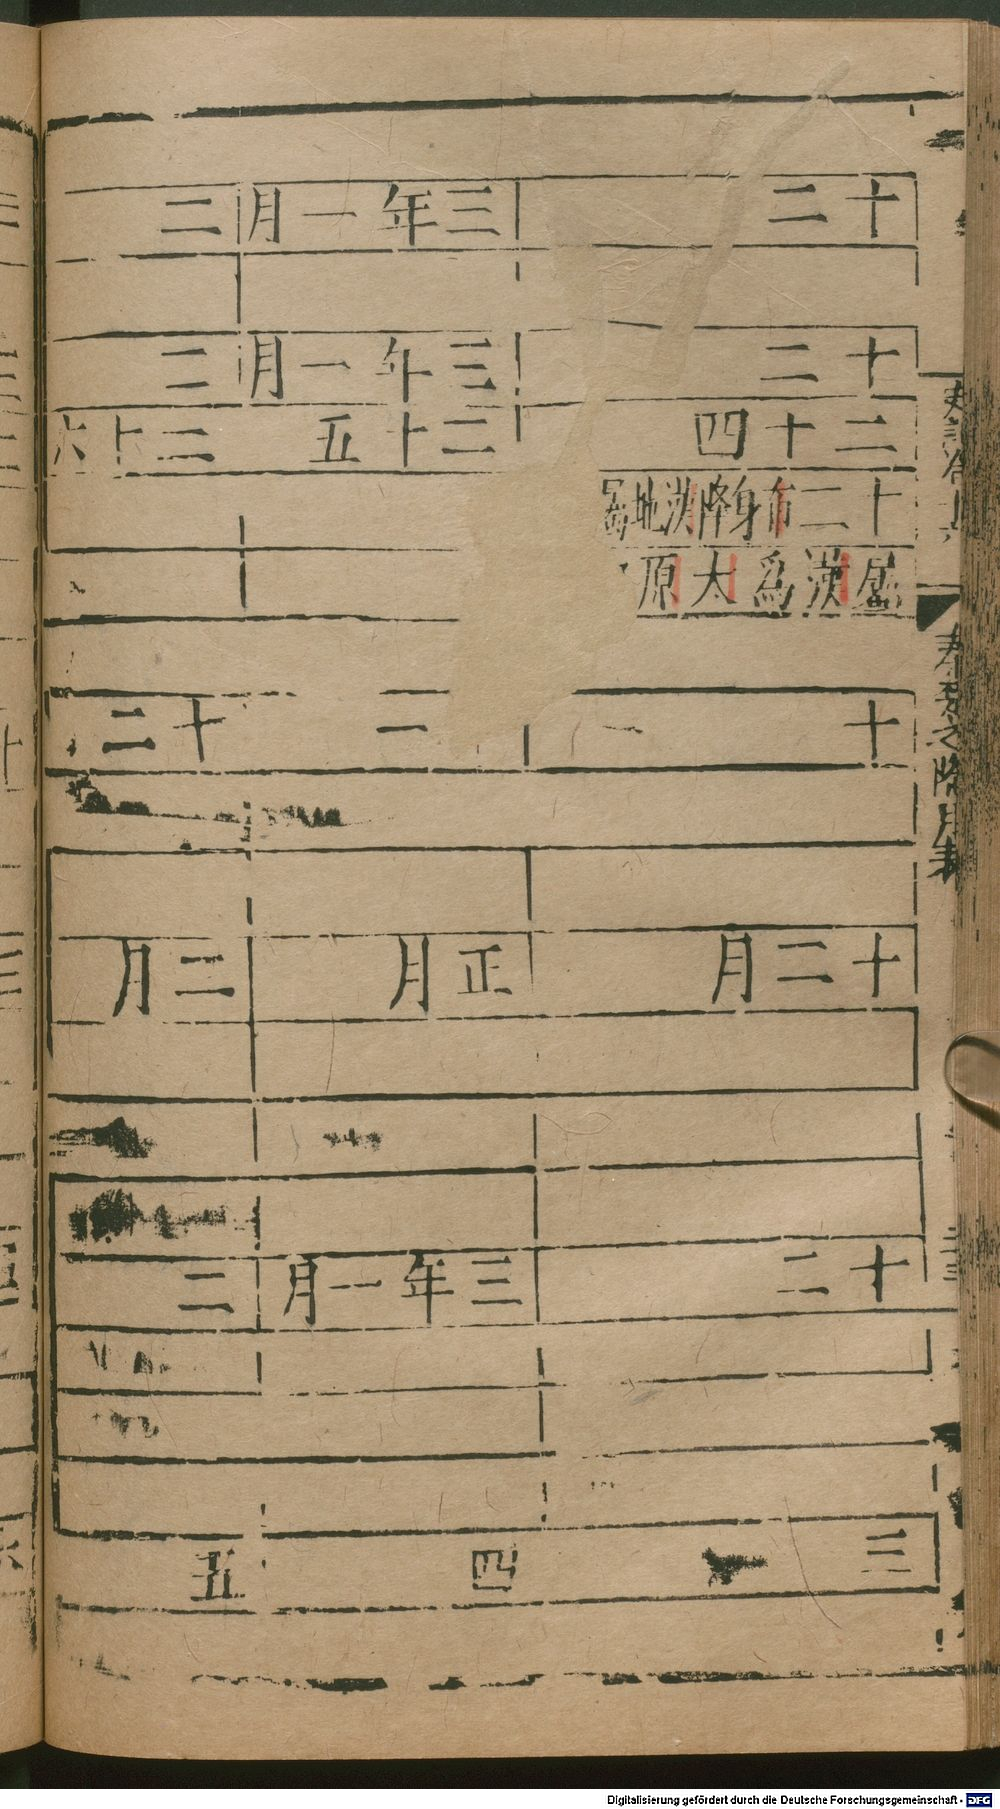 十二
三年一月
二
十二
三年一月
二
二十四
二十五
二十六
十二布身降漢地屬
屬漢爲太原
十
一
十二
十二月
正月
二月
十二
三年一月
二
三
四
五
秦楚之際月表
Digitalisierung gefördert durch die Deutsche Forschungsgemeinschaft - DFG